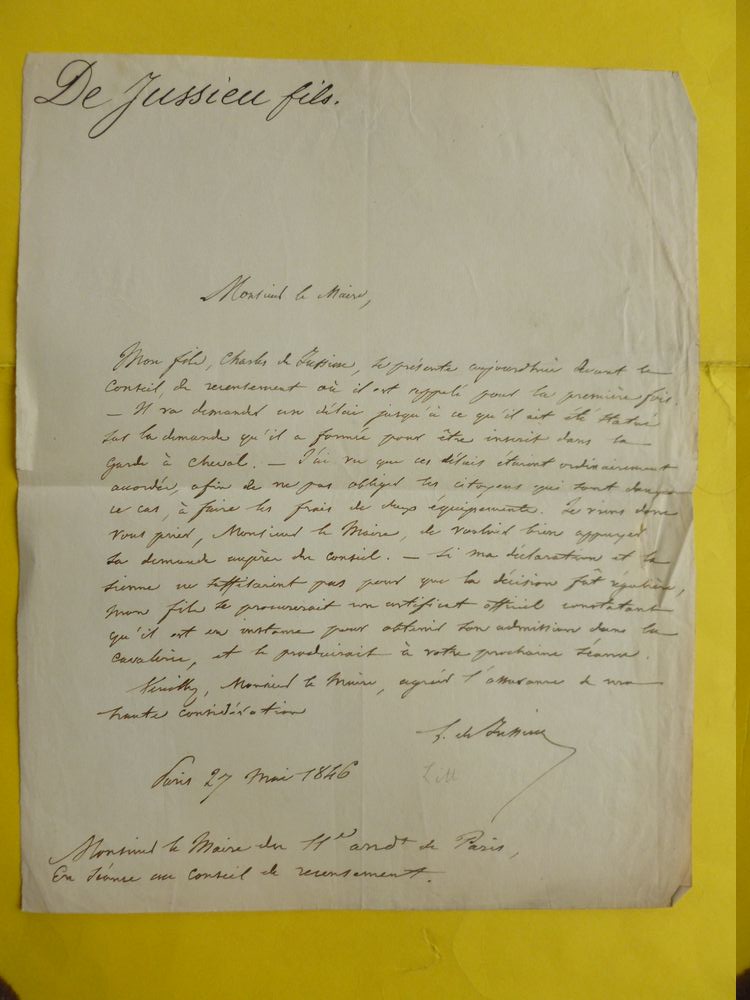 De Jussieu fils.
Monsieur le Maire,
Mon fils, Charles de Jussieu, se présente aujourd'hui devant le
Conseil de recensement où il est appelé pour la première fois.
— Il va demander un délai jusqu'à ce qu'il ait été statué
sur la demande qu'il a formée pour être inscrit dans la
Garde à cheval. — J'ai vu que ces délais étaient ordinairement
accordés, afin de ne pas obliger les citoyens qui sont dans
ce cas, à faire les frais de deux équipements. Je viens donc
vous prier, Monsieur le Maire, de vouloir bien appuyer
sa demande auprès du conseil. — Si ma déclaration et la
sienne ne suffisaient pas pour que la décision fût régulière,
mon fils se procurerait un certificat officiel constatant
qu'il est en instance pour obtenir son admission dans la
cavalerie, et le produirait à votre prochaine séance.
Veuillez, Monsieur le Maire, agréer l'assurance de ma
haute considération
de Jussieu
Paris 27 Mai 1846
Monsieur le Maire du 11e arrdt de Paris,
En séance au Conseil de recensement.